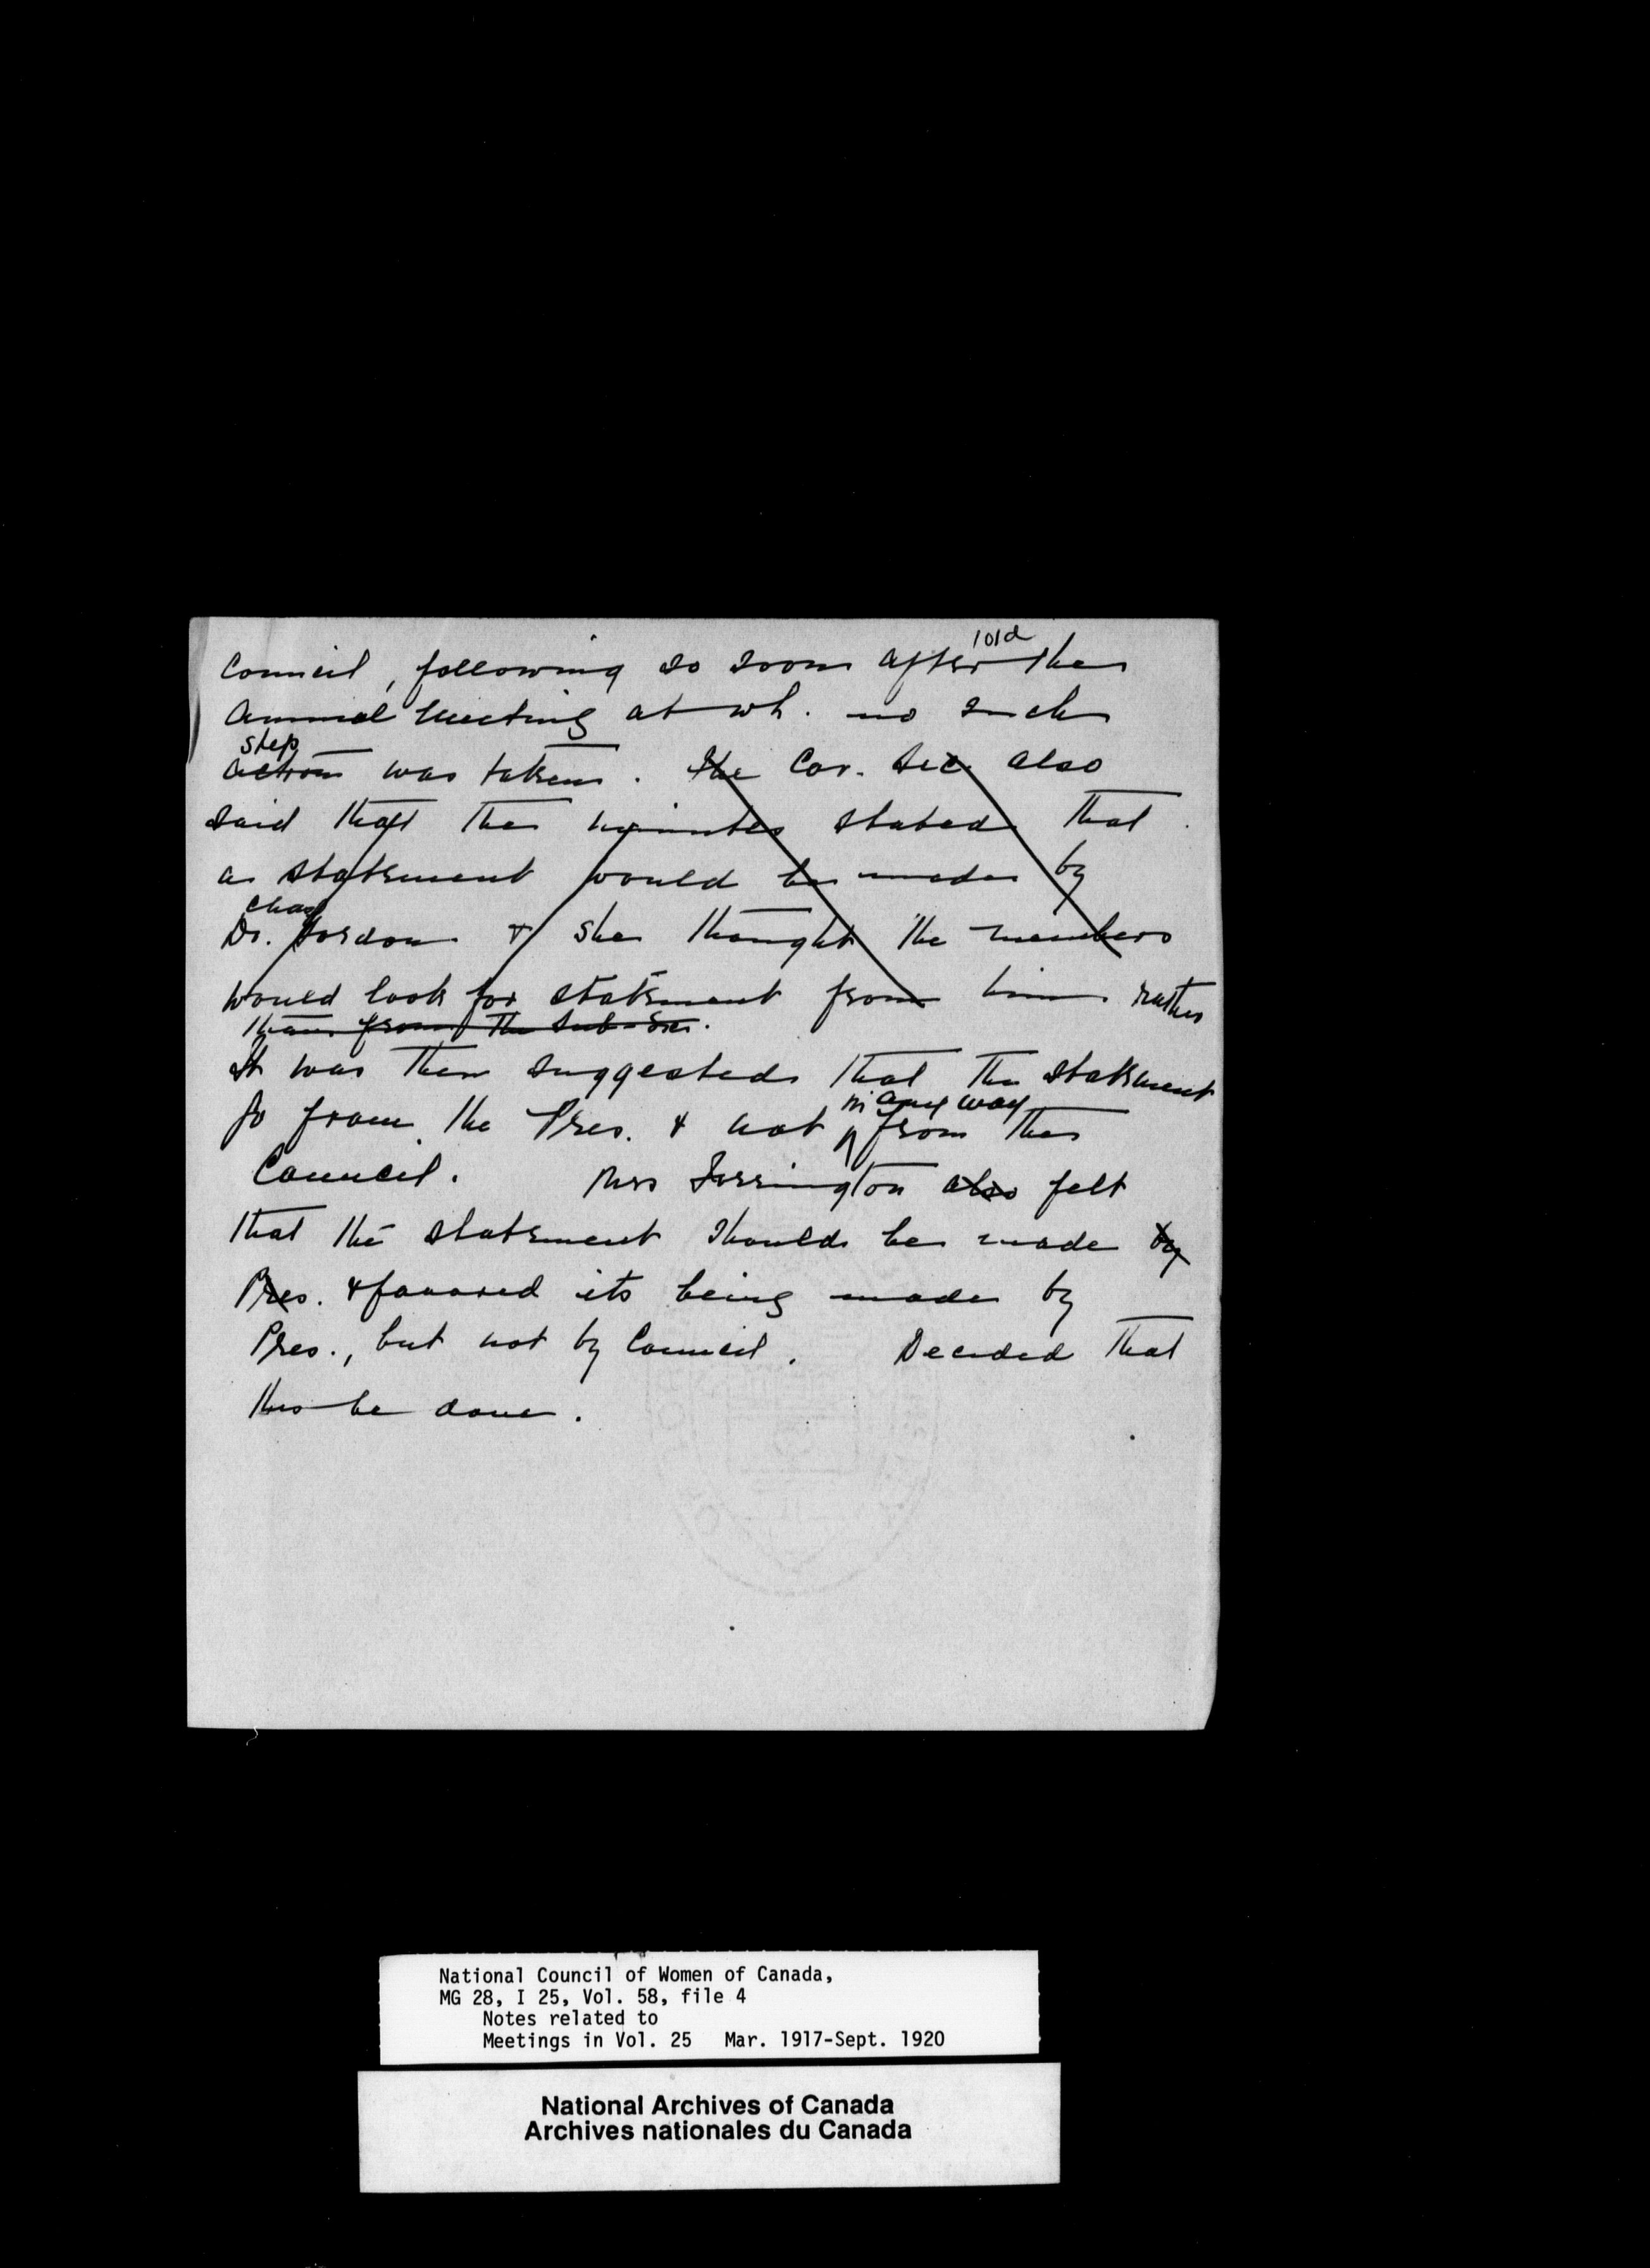 101d
Council, following so soon after the
Annual Meeting at wh. no such
step
action was taken. The Cor. Sec. also
said that the minutes stated that
a statement would be made by
Chas
Dr. Gordon & she thought the members
would look for statement from him rather
than from the Sub-Ex.
It was then suggested that the statement
go from the Pres. & not from the
in any way
Council. Mrs Torrington also felt
that the statement should be made by
Pres. & favored its being made by
Pres., but not by Council. Decided that
this be done.
National Council of Women of Canada,
MG 28, I 25, Vol. 58, file 4
Notes related to
Meetings in Vol. 25 Mar. 1917-Sept. 1920
National Archives of Canada
Archives nationales du Canada